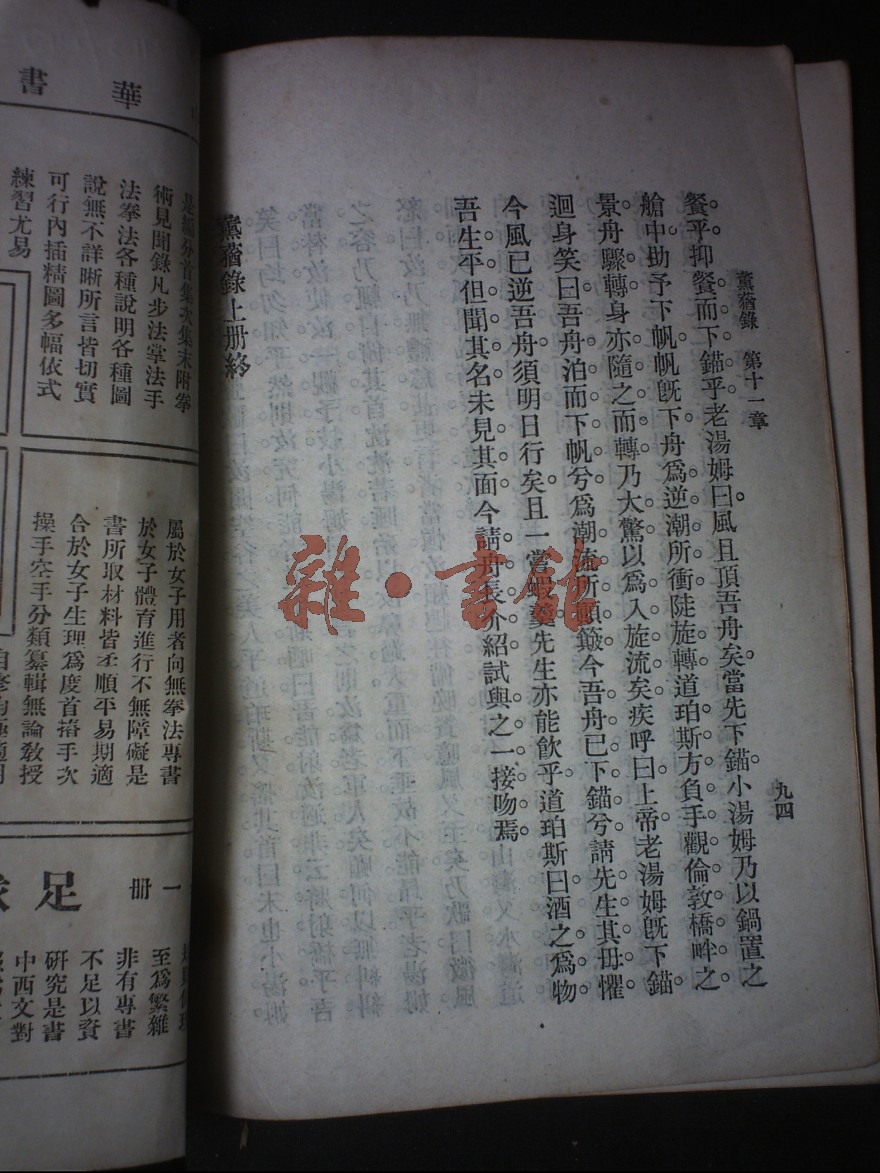 薰蕕錄　第十一章
九四
餐乎抑餐而下錨乎老湯姆曰風且頂吾舟矣當先下錨小湯姆乃以鍋置之
艙中助予下帆帆旣下舟爲逆潮所衝陡旋轉道珀斯方負手觀倫敦橋畔之
景舟驟轉身亦隨之而轉乃大驚以爲入旋流矣疾呼曰上帝老湯姆旣下錨
迴身笑曰吾舟泊而下帆兮爲潮流所顚簸今吾舟已下錨兮請先生其毋懼
今風已逆吾舟須明日行矣且一嘗蝦羹先生亦能飲乎道珀斯曰酒之爲物
吾生平但聞其名未見其面今請舟長介紹試與之一接吻焉
薰蕕錄上册終
雜·書館
華書
是編分首集次集末附拳
術見聞錄凡步法掌法手
法拳法各種說明各種圖
說無不詳晰所言皆切實
可行內插精圖多幅依式
練習尤易
屬於女子用者向無拳法專書
於女子體育進行不無障礙是
書所取材料皆柔順平易期適
合於女子生理爲度首捲手次
操手空手分類纂輯無論敎授
一册
足
至爲繁雜
非有專書
不足以資
硏究是書
中西文對